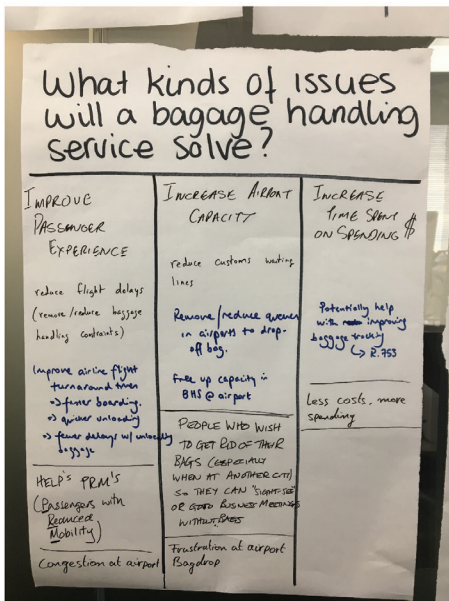 What kinds of issues
will a bagage handling
service solve?
IMPROVE
PASSENGER
EXPERIENCE
reduce flight delays
(remove/reduce baggage
handling contraints)
Improve airline flight
turnaround times
=> fewer boarding.
=> quicker unloading
=> fewer delays w/ unloading
baggage
HELP'S PRM'S
(Passengers with
Reduced
Mobility)
Congestion at airport
INCREASE AIRPORT
CAPACITY
reduce customs waiting
lines
Remove/reduce queues
in airports to drop-
off bag.
Free up capacity in
BHS @ airport
PEOPLE WHO WISH
TO GET RID OF THEIR
BAGS (ESPECIALLY
WHEN AT ANOTHER CITY)
SO THEY CAN "SIGHT-SEE"
OR GOTO BUSINESS MEETINGS
WITHOUT BAGS
Frustration at airport
Bagdrop
INCREASE
TIME SPENT
ON SPENDING $
Potentially help
with improving
baggage tracking
↳ R.753
Less costs, more
spending